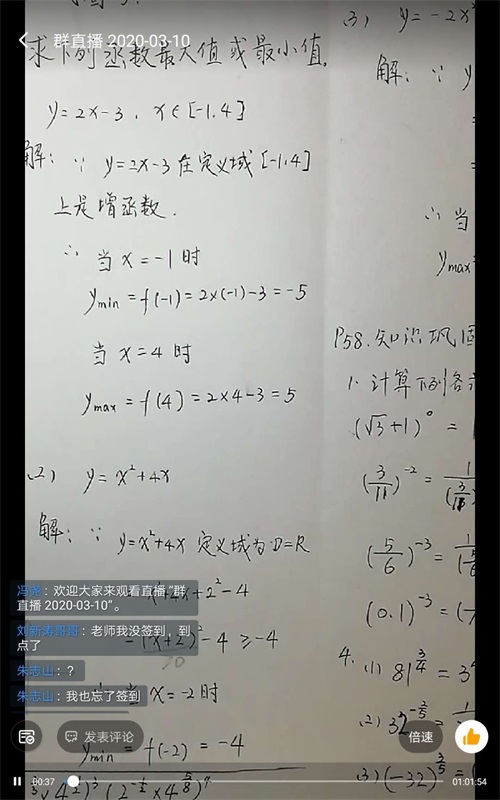 群直播 2020-03-10
求下列函数最大值或最小值。
y=2x-3, x∈[-1.4]
解：∵ y=2x-3 在定义域 [-1.4]
上是增函数.
∴ 当 x=-1 时
ymin = f(-1) = 2×(-1)-3 = -5
当 x=4 时
ymax = f(4) = 2×4-3 = 5
2) y=x²+4x
解：∵ y=x²+4x 定义域为 D=R
+4x+2²-4
=(x+2)²-4 ≥ -4
当 x=-2 时
ymin = f(-2) = -4
(3) y=-2x
解：∵ y
∴ 当
ymax
P58.知识巩固
1. 计算下列各
(√3+1)⁰ =
(3/11)⁻² = 1
(5/6)⁻³ = 1
(0.1)⁻³ =
4. (1) 81^(3/4) = 3
(2) 32^(-2/5) =
(3) (-32)^(3/5) =
冯尧：欢迎大家来观看直播“群
直播 2020-03-10”。
刘新涛哥哥：老师我没签到，到
点了
朱志山：？
朱志山：我也忘了签到
发表评论
倍速
00:37
01:01:54